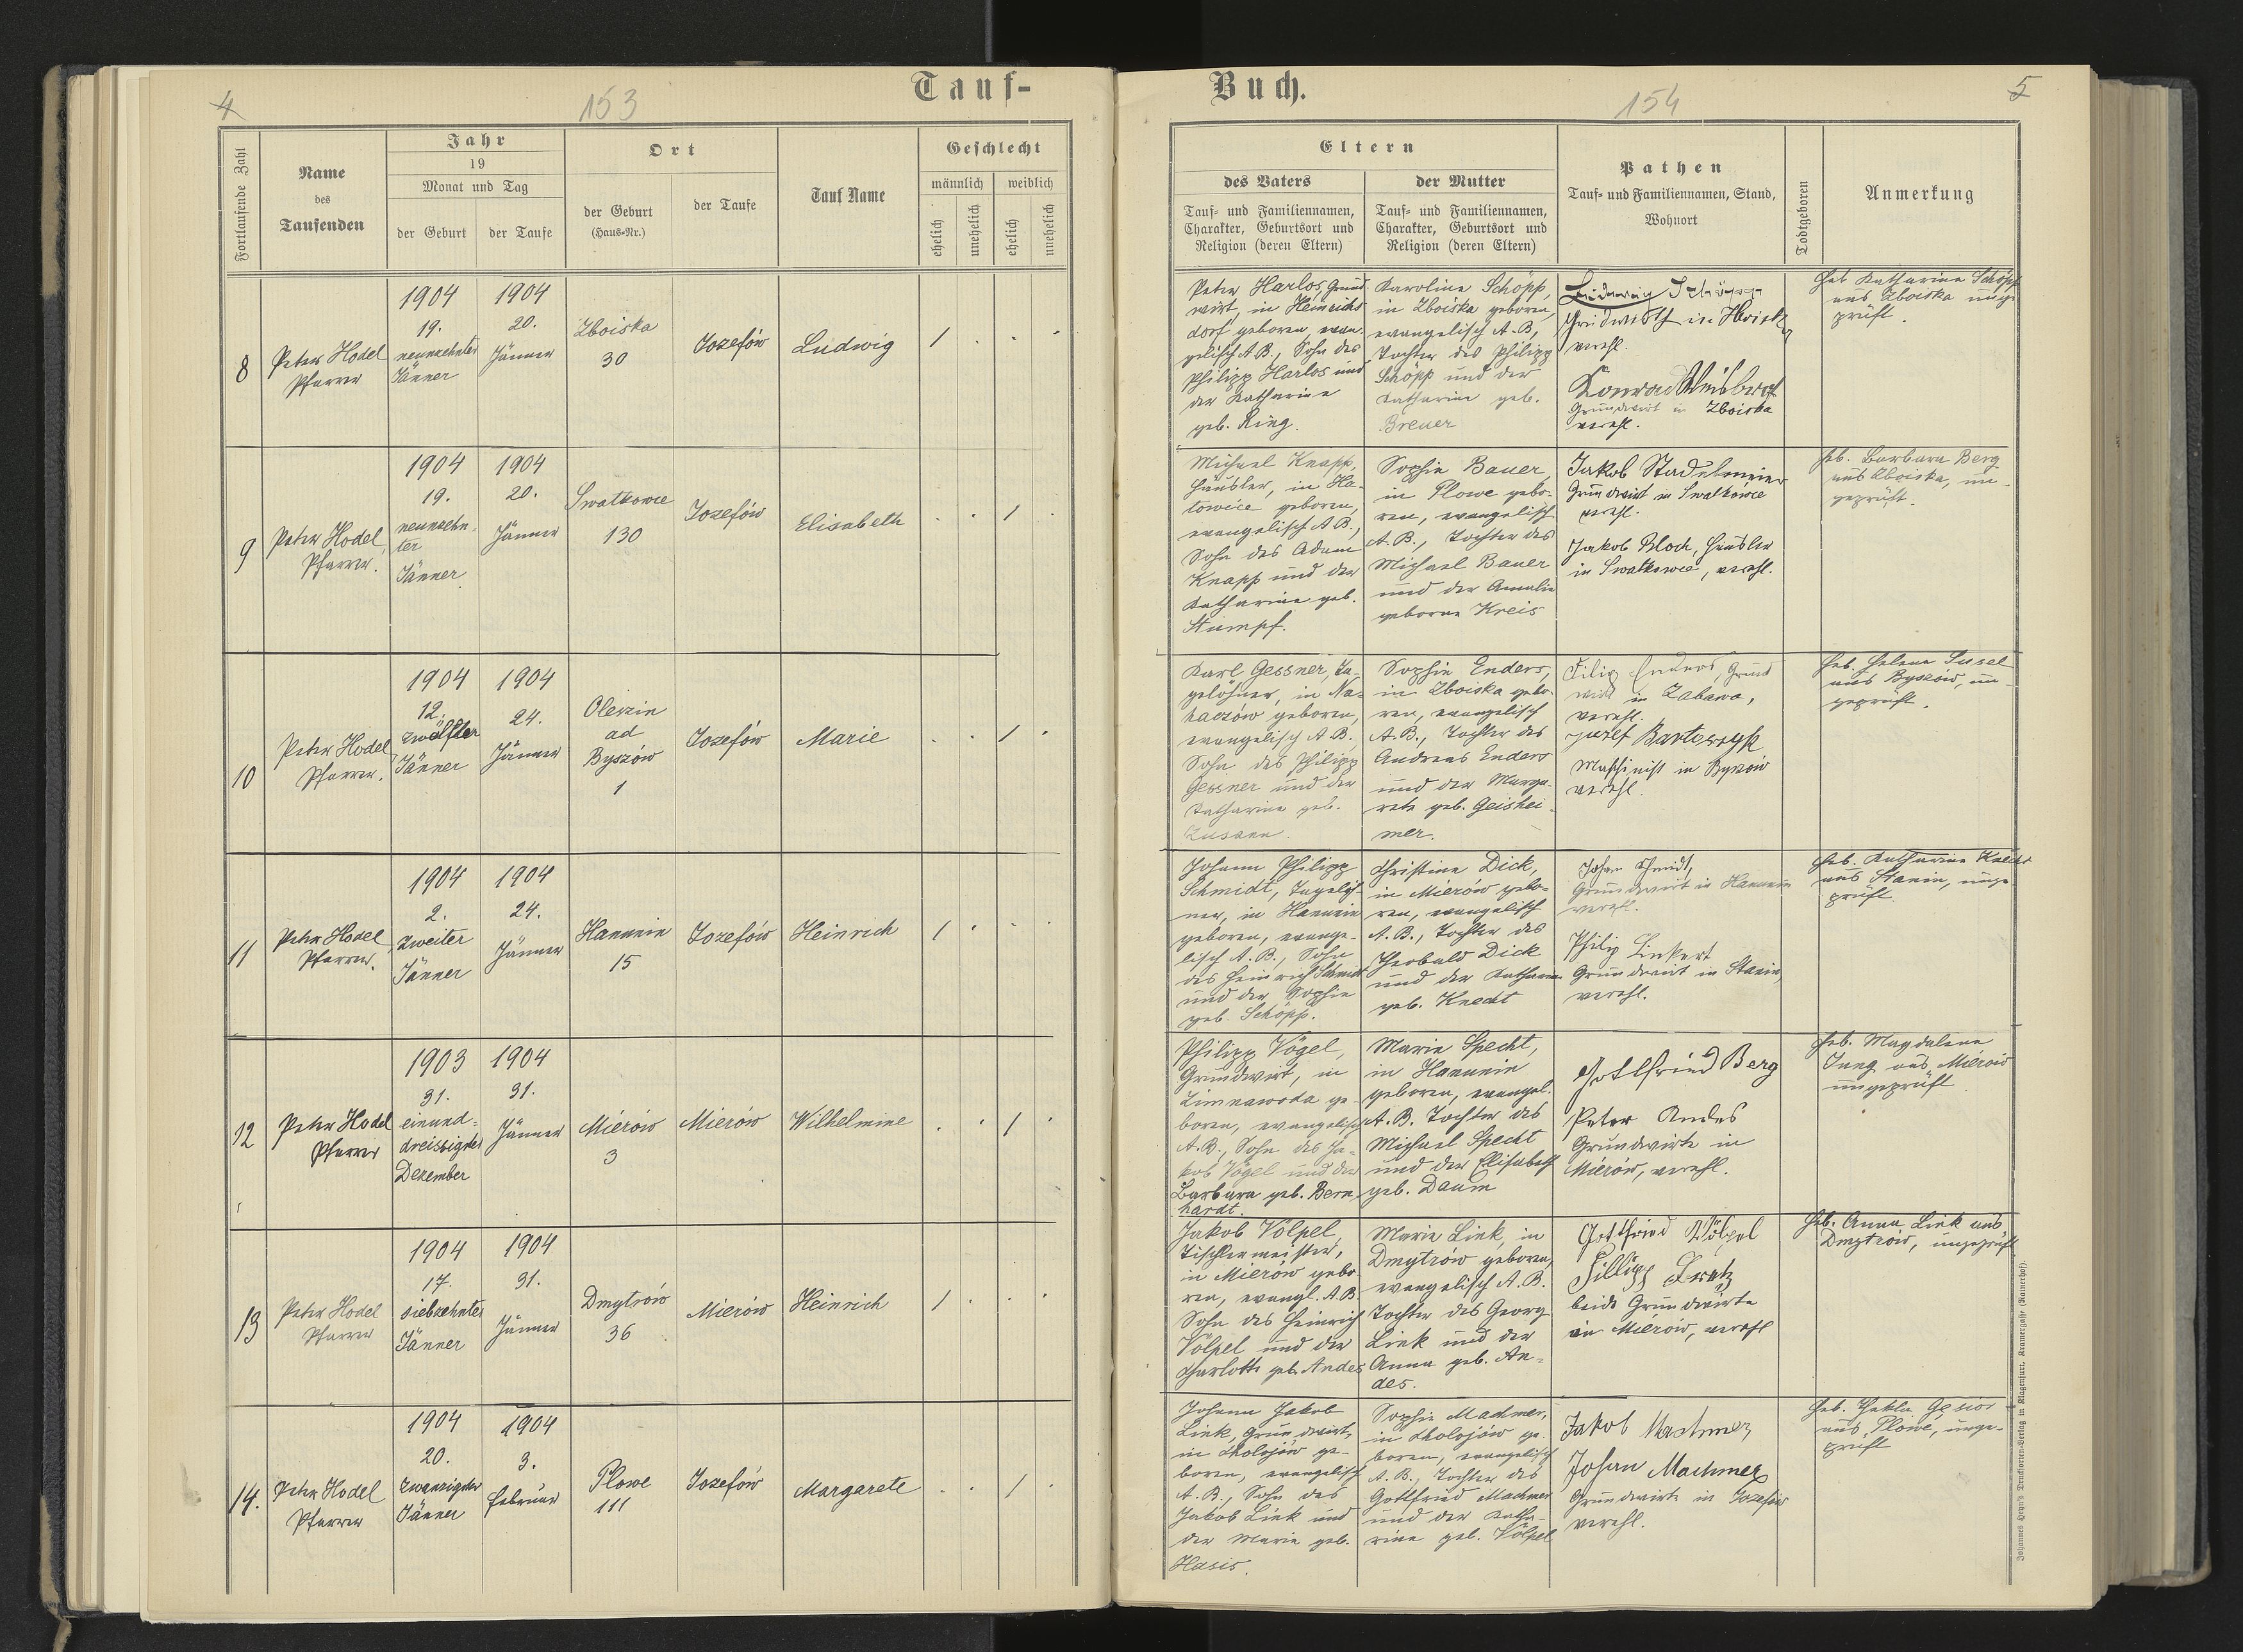 4
153
Tauf-
Fortlaufende Zahl
Name
des
Taufenden
Jahr
19
Monat und Tag
der Geburt
der Taufe
Ort
der Geburt
(Haus-Nr.)
der Taufe
Tauf Name
Geschlecht
männlich
weiblich
ehelich
unehelich
ehelich
unehelich
8
Peter Hodel
Pfarrer
1904
19.
neunzehnter
Jänner
1904
20.
Jänner
Zboiska
30
Jozefów
Ludwig
1
9
Peter Hodel,
Pfarrer.
1904
19.
neunzehn-
ter
Jänner
1904
20.
Jänner
Swatkowce
130
Jozefów
Elisabeth
1
10
Peter Hodel
Pfarrer.
1904
12.
zwölfter
Jänner
1904
24.
Jänner
Olerzin
ad
Byszów
1
Jozefów
Marie
1
11
Peter Hodel
Pfarrer.
1904
2.
zweiter
Jänner
1904
24.
Jänner
Hanunin
15
Jozefów
Heinrich
1
12
Peter Hodel
Pfarrer
1903
31.
einund-
dreissigster
Dezember
1904
31.
Jänner
Mierów
3
Mierów
Wilhelmine
1
13
Peter Hodel
Pfarrer
1904
17.
siebzehnter
Jänner
1904
31.
Jänner
Dmytrów
36
Mierów
Heinrich
1
14.
Peter Hodel
Pfarrer
1904
20.
zwanzigster
Jänner
1904
3.
Februar
Plowe
111
Jozefów
Margarete
1
Buch.
154
5
Eltern
des Vaters
Tauf- und Familiennamen,
Charakter, Geburtsort und
Religion (deren Eltern)
der Mutter
Tauf- und Familiennamen,
Charakter, Geburtsort und
Religion (deren Eltern)
Pathen
Tauf- und Familiennamen, Stand,
Wohnort
Todtgeboren
Anmerkung
Peter Harlos, Grund-
wirt, in Heinrichs
dorf geboren, evan-
gelisch A.B., Sohn des
Philipp Harlos und
der Katharine
geb. Ring.
Karoline Schöpp,
in Zboiska geboren,
evangelisch A.B.,
Tochter des Philipp
Schöpp und der
Katharine geb.
Breuer
Ludwig Schöpp
Grundwirth in Zboiska
verehl.
Konrad Weisbrot
Grundwirt in Zboiska
verehl.
Heb. Katharine Schöpp
aus Zboiska unge-
prüft.
Michael Knapp,
Häusler, in Ha-
lowice geboren,
evangelisch A.B.,
Sohn des Adam
Knapp und der
Katharine geb.
Stumpf.
Sophie Bauer,
in Plowe gebo-
ren, evangelisch
A.B., Tochter des
Michael Bauer
und der Amalie
geborne Kreis
Jakob Stadelmeier
Grundwirt in Swatkowce
verehl.
Jakob Bloch, Häusler
in Swatkowce, verehl.
Heb. Barbara Berg
aus Zboiska, un-
geprüft.
Karl Gessner, Ta-
gelöhner, in Na-
haczów geboren,
evangelisch A.B.,
Sohn des Philipp
Gessner und der
Katharine geb.
Zusann.
Sophie Enders,
in Zboiska gebo-
ren, evangelisch
A.B., Tochter des
Andreas Enders
und der Marga-
rete geb. Geishei-
mer.
Filip Enders, Grund
wirt in Zabawa,
verehl.
Maschinist in Byszów
verehl.
Heb. Helena Susel
aus Byszów, un-
geprüft.
Johann Philipp
Schmidt, Tagelöh-
ner, in Hanunin
geboren, evange-
lisch A.B., Sohn
des Heinrich Schmidt
und der Sophie
geb. Schöpp.
Christine Dick,
in Mierów gebo-
ren, evangelisch
A.B., Tochter des
Theobald Dick
und der Katharine
geb. Knecht
Johan Schmidt,
Grundwirt in Hanunin
verehl.
Philip Linkert
Grundwirt in Stanin,
verehl.
Heb. Katharine Knecht
aus Stanin, unge-
prüft.
Philipp Vögel,
Grundwirt, in
Zimnawoda ge-
boren, evangelisch
A.B., Sohn des Ja-
kob Vögel und der
Barbara geb. Bern-
hardt.
Marie Specht,
in Hanunin
geboren, evangel.
A.B. Tochter des
Michael Specht
und der Elisabeth
geb. Daum
Gottfried Berg
Peter Andes
Grundwirte in
Mierów, verehl.
Heb. Magdalena
Jung aus Mierów
ungeprüft
Jakob Völpel,
Tischlermeister,
in Mierów gebo-
ren, evangl. A.B.
Sohn des Heinrich
Völpel und der
Charlotte geb. Andes
Marie Link, in
Dmytrów geboren,
evangelisch A.B.
Tochter des Georg
Link und der
Anna geb. An-
des.
Gottfried Völpel
Fillipp Kratz
beide Grundwirte
in Mierów, verehl
Heb. Anna Link aus
Dmytrów, ungeprüft
Johann Jakob
Link, Grundwirt,
in Cholojów ge-
boren, evangelisch
A.B., Sohn des
Jakob Link und
der Marie geb.
Hasis.
Sophie Machmer,
in Cholojów ge-
boren, evangelisch
A.B., Tochter des
Gottfried Machmer
und der Katha-
rine geb. Völpel
Jakob Machmer
Johan Machmer
Grundwirte in Jozefów
verehl.
Heb. Thekla Gesior
aus Plowe, unge-
prüft
Johannes Heyn's Drucksorten-Verlag in Klagenfurt, Kramergasse (Ramerhof).